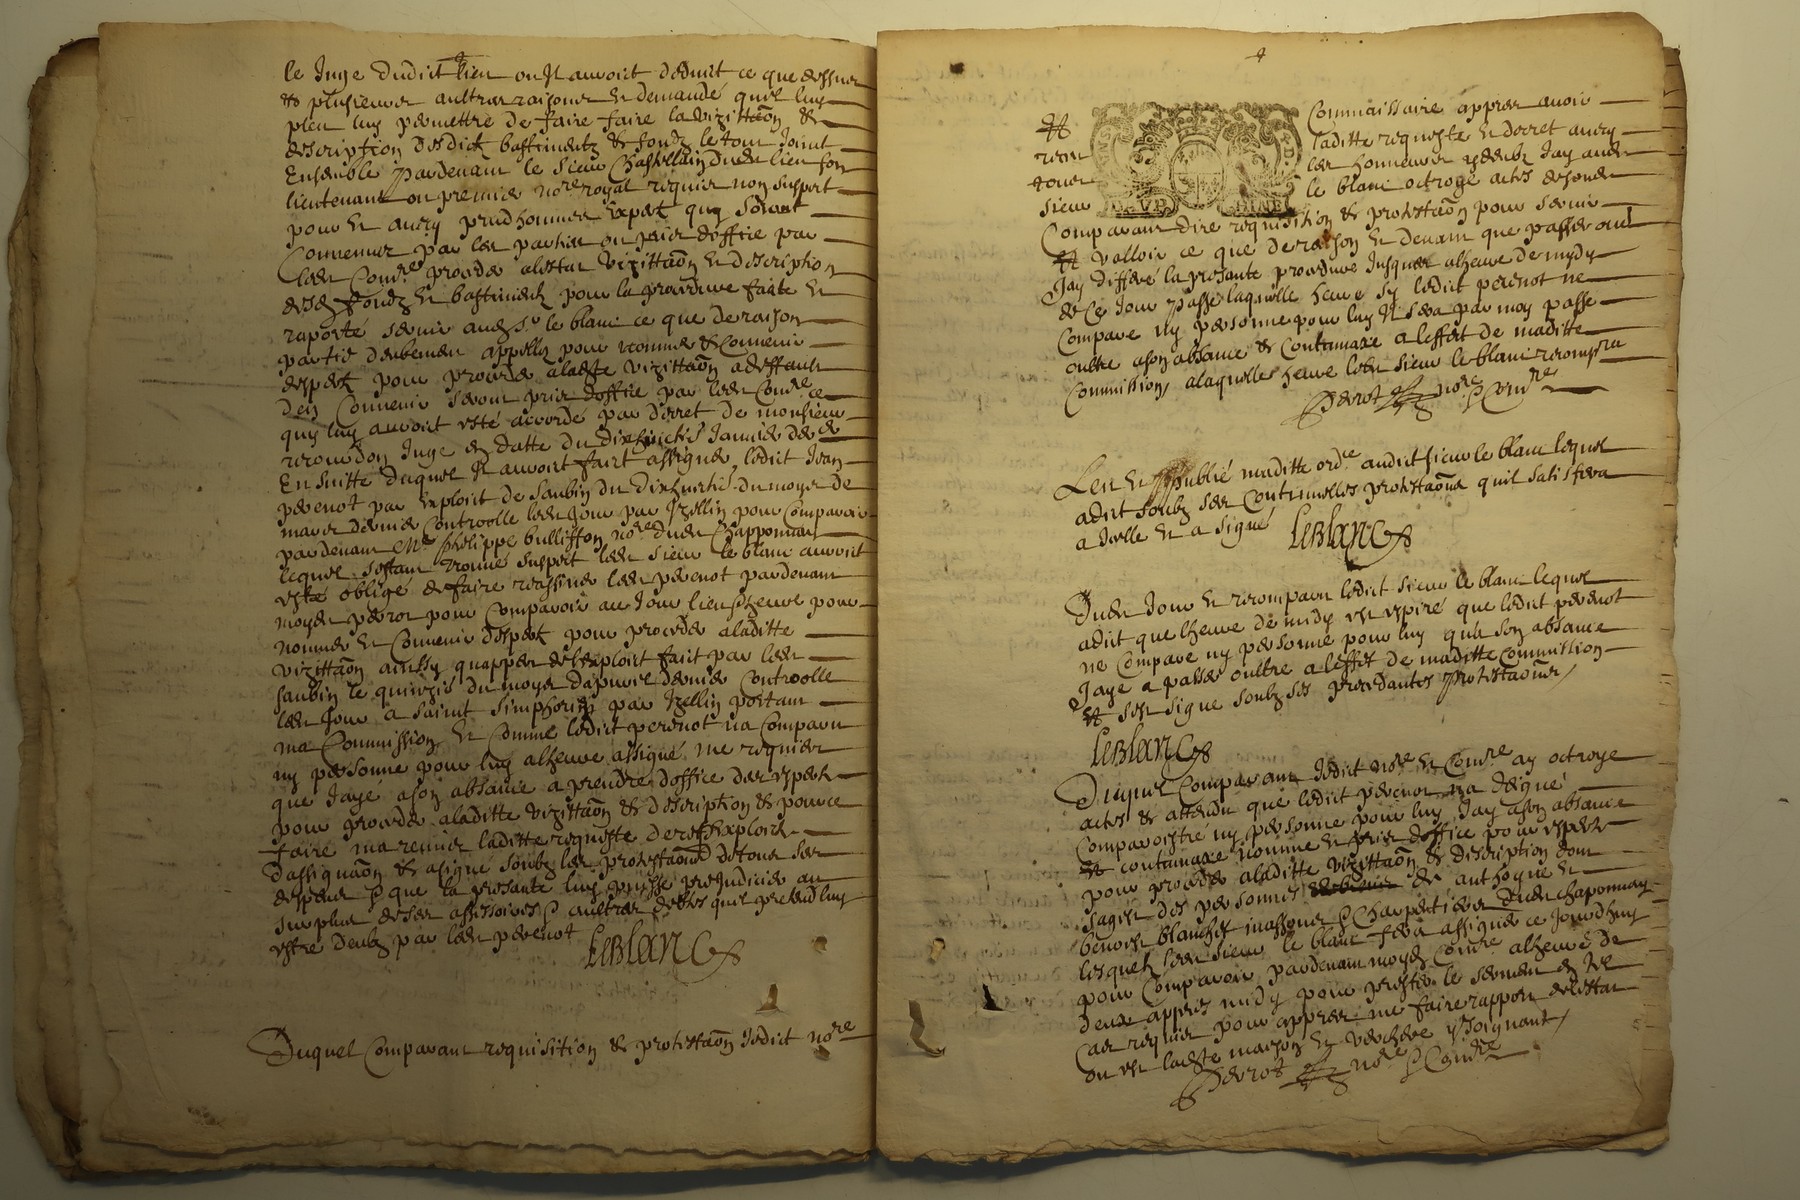 le Juge dudict lieu ou Jl auroit deduict ce que dessus
& plusieures aultres raisons et demandé quil luy
pleu luy permettre de faire faire la vizittaõn &
description desdictz bastimentz & fondz le tout Joint
Ensemble pardevant le sieur Chastellain dudit lieu son
lieutenant ou premier no.re royal requier non suspect
pour et aucuy prudhommes Expertz quy seront
Convenus par les parties ou pris d'office par
ledit Com.re proceder alestat vizittaõn et description
desd. fondz et bastimentz pour la procedure faite et
raporté servir audit s.r le blanc ce que de raison
partie deubement appellez pour nommer & convenir
despertz pour proceder aladitte vizittaõn adeffault
den Convenir seront pris d'office par ledit Com.re ce
quy luy auroit esté accordé par decret de monsieur
Juge en datte du dixhuictie Janvier de
En suitte duquel Jl auroit faict assigner ledict Jean
perenot par Exploict de saubin du dixhuictie du moys de
mars dernier controolle ledit Jour par Jzellin pour comparoir
pardevant M.re Phelippe bullisson no.re dudit Chapponnay
lequel sestant trouvé suspect ledit sieur le blanc auroit
esté obligé de faire reassiner ledit perenot pardevant
moydit perrot pour comparoir au Jour lieu & heure pour
nommer et Convenir despertz pour proceder aladitte
vizittaõn ainssy quapper delexploict faict par ledit
saubin le quinzie du moys dapvril dernier controolle
ledit Jour a saint simphorien par Jzellin portant
ma Commission et Comme ledict perenot na comparu
ny personne pour luy alheure assigné me requier
que Jaye a son absance a prendre doffice des expertz
pour proceder aladitte vizittaõn & description & pour ce
faire ma remis laditte requeste decret & Exploict
d'assignaõn & asigné soubz les protestaõns de tous ses
despens & que la presante luy puisse prejudicier au
surplus de ses assessoires & aultres debtes quil pretend luy
estre deubz par ledit perenot
LeBlanc
Duquel Comparant requisition & protestaõn Jedict no.re
4
Commaissaire appres avoir
laditte requeste et decret aucuy
les honneurs & deubz Jay audit
le blanc octroyé actes desondit
sieur
DAUPHINE
Comparant dire requisition & protestaõn pour servir
& valloir ce que de raison et devant que passer oultre
Jay differé la presante procedure Jusques alheure de mydy
de ce Jour passé laquelle heure sy ledict perenot ne
compare ny personne pour luy Jl sera par moy passé
oultre a son absance & contumaxe a leffect de maditte
Commission, alaquelle heure ledit sieur le blanc recompera
Perrot no.re & Com.re
Leu et publié maditte ord.ce audict sieur le blanc lequel
adict soubz ses continuelles protestaõns quil satisfera
a Jcelle et a signé LeBlanc
Dudit Jour et recomparu ledict sieur le blanc lequel
adict que lheure de midy est expiré que ledict perenot
ne compare ny personne pour luy qua son absance
Jaye a passer oultre a leffet de maditte Commission
& sest signé soubz ses precedantes protestaõns,
LeBlanc
Duquel Comparant Jedict no.re et Com.re ay octroye
actes & attendu que ledict perenot na deigné
comparoistre ny personne pour luy Jay a son absance
& contumaxe nommé et pris doffice pour expertz
pour proceder aladitte vizittaõn & description dont
sagist des personnes de anthoyne et
benoist blanchet massons & charpentiers dudit chaponnay
lesquelz ledit sieur le blanc fera assigner ce jourdhuy
pour comparoir pardevant moydit Com.re alheure de
deux appres midy pour prester le serment en tel
cas requier pour appres me faire rapport de lestat
ou est ladite maison et verchere y Joignant,
Perrot no.re & Com.re